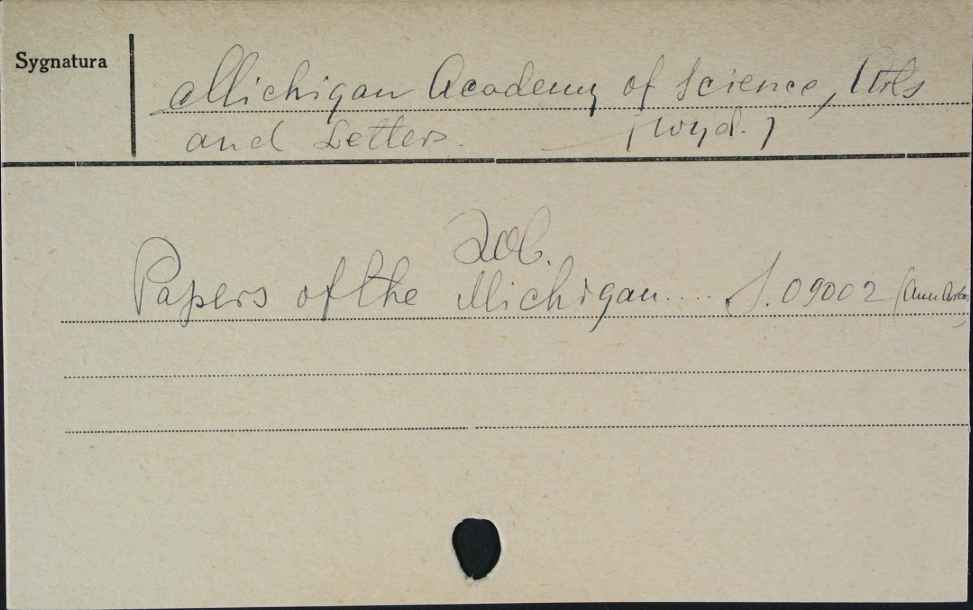 Sygnatura
Michigan Academy of Science, Arts
and Letters. [wyd.]
Zob.
Papers of the Michigan.... S.09002 (Ann Arbor)